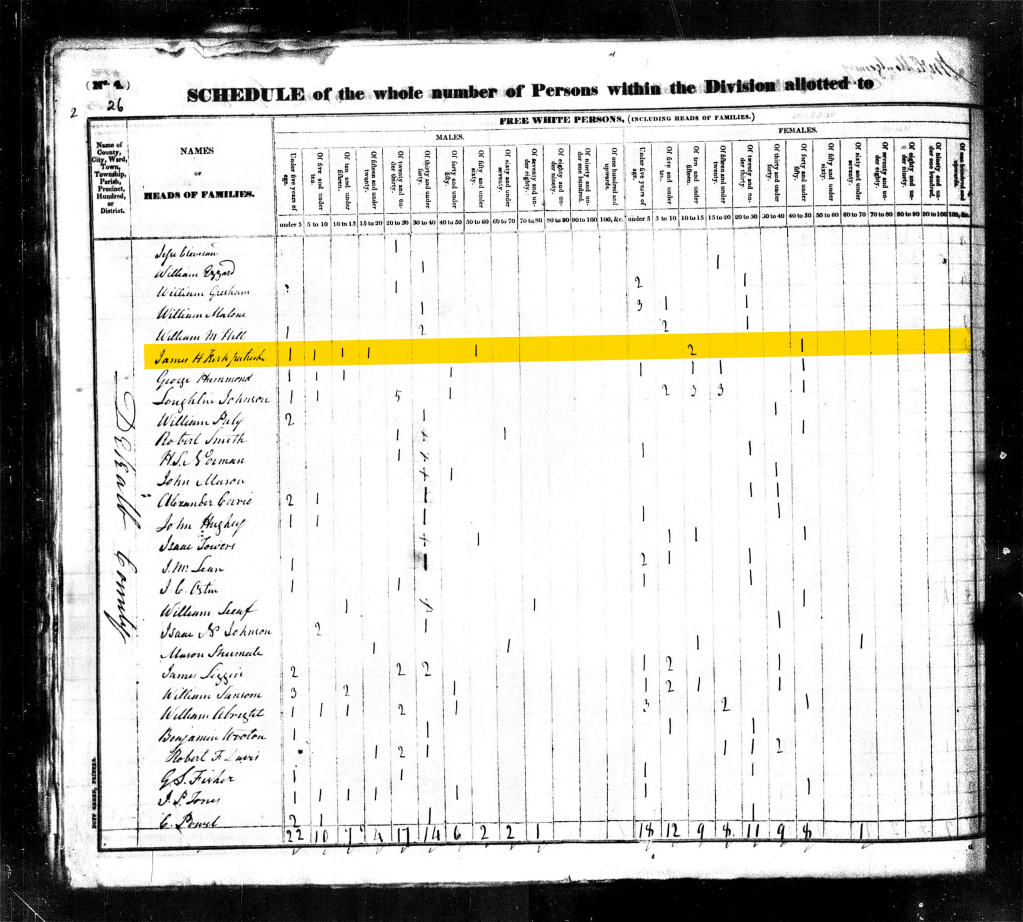 (No. 4.)
2 26
SCHEDULE of the whole number of Persons within the Division allotted to
FREE WHITE PERSONS, (INCLUDING HEADS OF FAMILIES.)
MALES. FEMALES.
Name of County, City, Ward, Town, Township, Parish, Precinct, Hundred, or District.
NAMES
OF
HEADS OF FAMILIES.
Under five years of age. Of five and under ten. Of ten and under fifteen. Of fifteen and under twenty. Of twenty and under thirty. Of thirty and under forty. Of forty and under fifty. Of fifty and under sixty. Of sixty and under seventy. Of seventy and under eighty. Of eighty and under ninety. Of ninety and under one hundred. Of one hundred and upwards. Under five years of age. Of five and under ten. Of ten and under fifteen. Of fifteen and under twenty. Of twenty and under thirty. Of thirty and under forty. Of forty and under fifty. Of fifty and under sixty. Of sixty and under seventy. Of seventy and under eighty. Of eighty and under ninety. Of ninety and under one hundred. Of one hundred and upwards.
under 5 5 to 10 10 to 15 15 to 20 20 to 30 30 to 40 40 to 50 50 to 60 60 to 70 70 to 80 80 to 90 90 to 100 100, &c. under 5 5 to 10 10 to 15 15 to 20 20 to 30 30 to 40 40 to 50 50 to 60 60 to 70 70 to 80 80 to 90 90 to 100 100, &c.
DeKalb County
1
William Ezzard 1 1
William Gresham 1 2 1
William Malone 1 3 1 1
William M Hill 1 2 2 1
James H Kirkpatrick 1 1 1 1 1 2 1
George Hummond 1 1 1 1 1 1 1 1
Loughlin Johnson 1 1 5 1 2 3 3 1
William 2 1 1
Robert Smith 1 1 1
1 1 1
John Mason 1 1
Alexander 2 1 1 1 1
John Hughey 1 1 1 1 1
Isaac Towers 1 1 1 1
1 1 2 1 1
1 1 1 1
William 1 1 1
Isaac N Johnson 2 1 1
Mason Shumate 1 1 1 1
James Liggin 2 2 2 1 2 1
William Sansom 3 2 1 1 2 1 1
William Abright 1 1 1 2 1 3 2 1
Benjamin Wooton 1 1 1 1
Robert F Davis 1 2 1 1 1 2
G S. Fisher 1 1 1 1
J. P. Jones 1 1 1 1 1 1 1
C. Powel 2 1 1 1
22 10 7 4 17 14 6 2 2 1 18 12 9 8 11 9 8 1